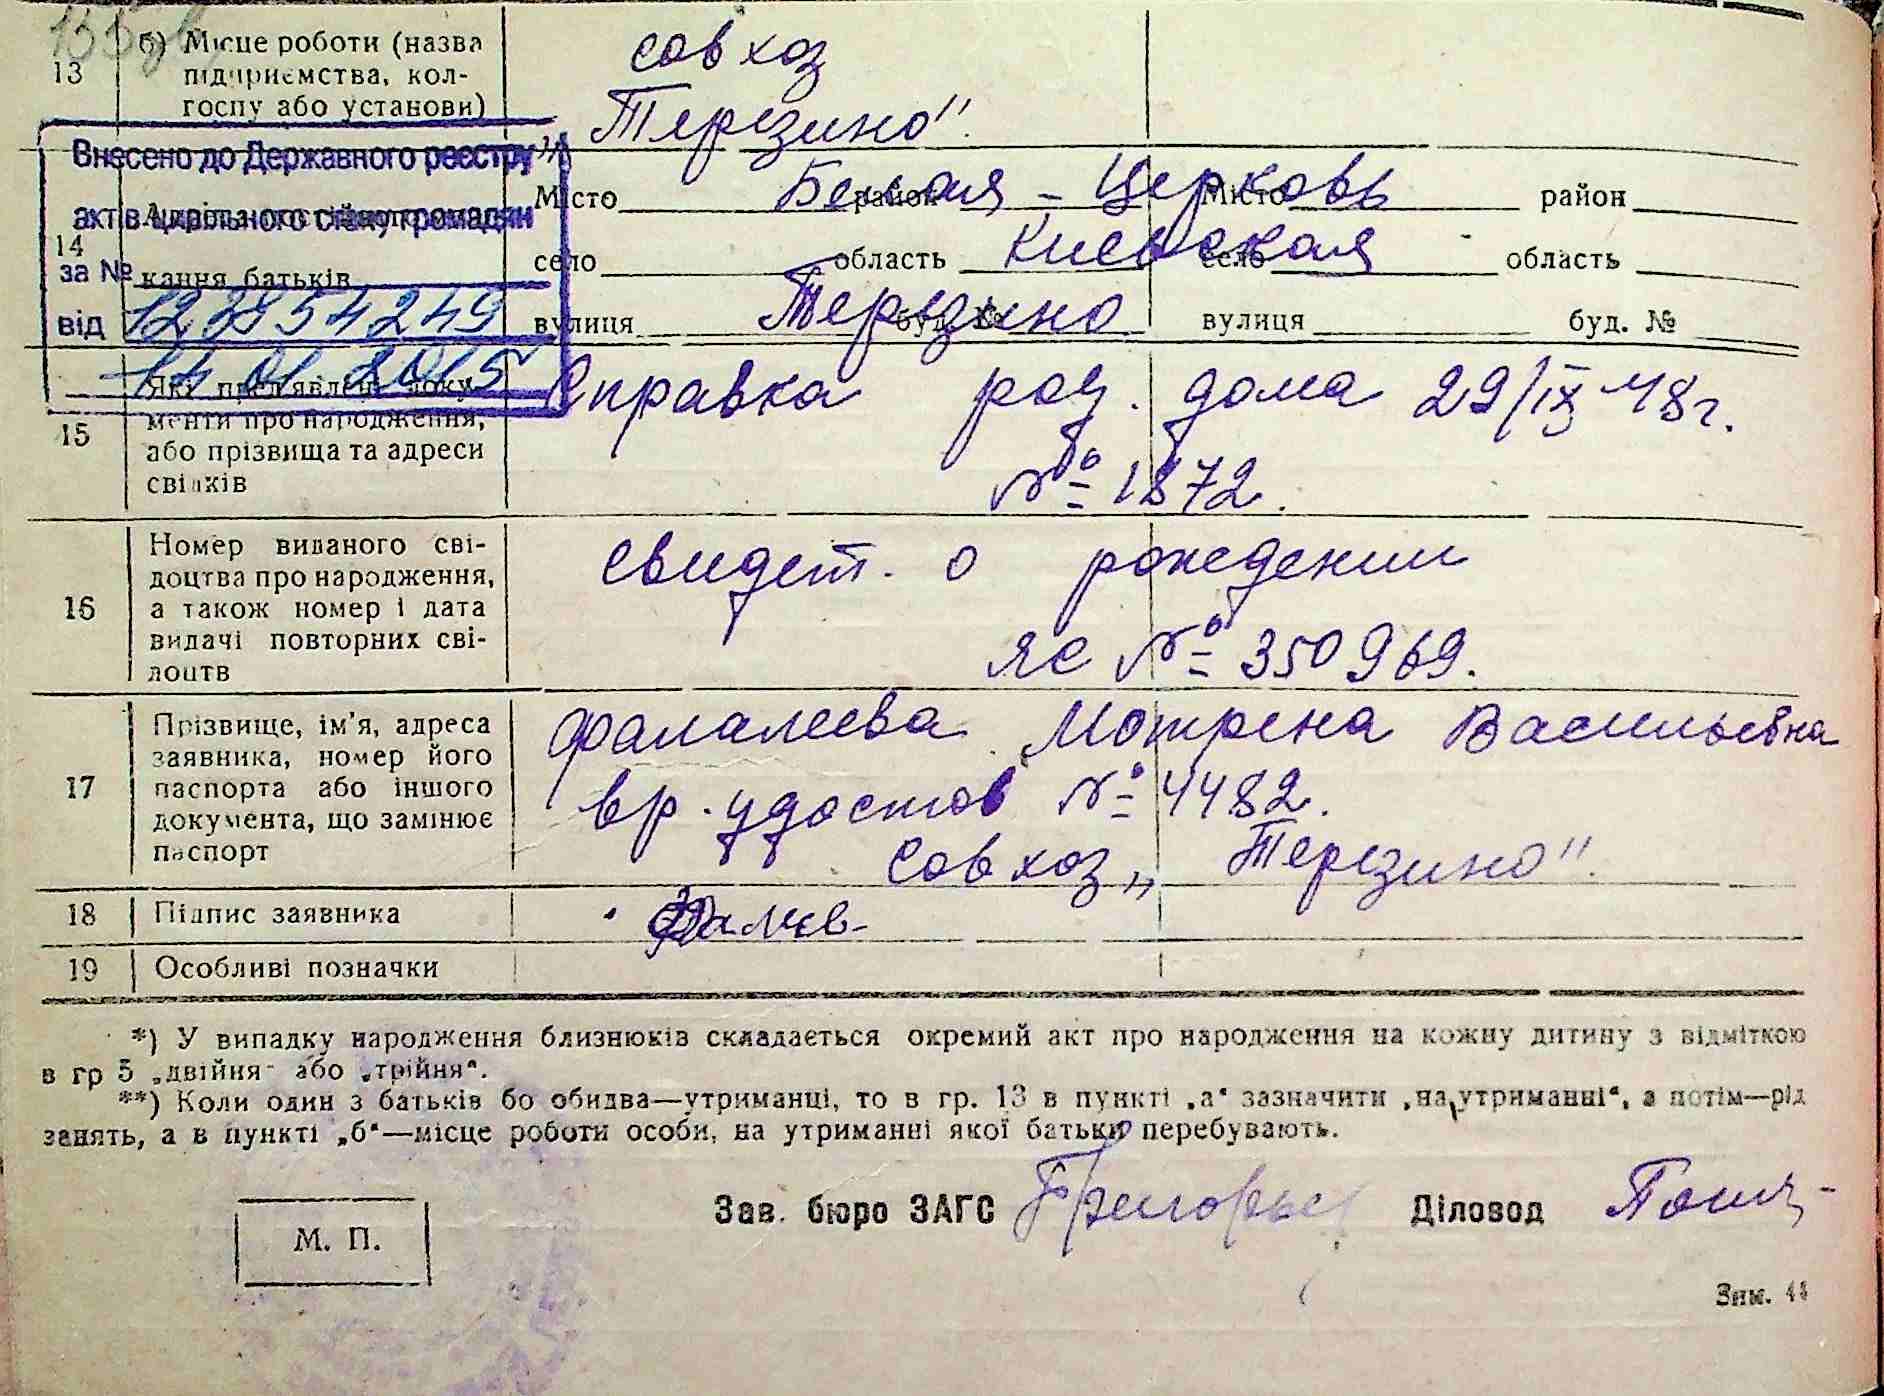 13
б) Місце роботи (назва
підприємства, кол-
госпу або установи)
совхоз
„Терезино".
Внесено до Державного реєстру
актів цивільного стану громадян
за №
від 12854249
14 01 2015
14
кання батьків
Місто район Белая-Церковь
село область Киевская
вулиця буд. № Терезино
Місто район
село область
вулиця буд. №
15
Які пред'явлені доку-
менти про народження,
або прізвища та адреси
свідків
Справка род. дома 29/IX 48 г.
№ 1872.
16
Номер виданого сві-
доцтва про народження,
а також номер і дата
видачі повторних сві-
доцтв
свидет. о рождении
ЯС № 350969.
17
Прізвище, ім'я, адреса
заявника, номер його
паспорта або іншого
документа, що замінює
паспорт
Фалалеева Мотрена Васильевна
вр. удостов № 4482.
Совхоз „Терезино".
18
Підпис заявника
19
Особливі позначки
*) У випадку народження близнюків складається окремий акт про народження на кожну дитину з відміткою
в гр 5 „двійня" або „трійня".
**) Коли один з батьків бо обидва—утриманці, то в гр. 13 в пункті „а" зазначити „на утриманні", а потім—рід
занять, а в пункті „б"—місце роботи особи, на утриманні якої батьки перебувають.
М. П.
Зав. бюро ЗАГС
Діловод